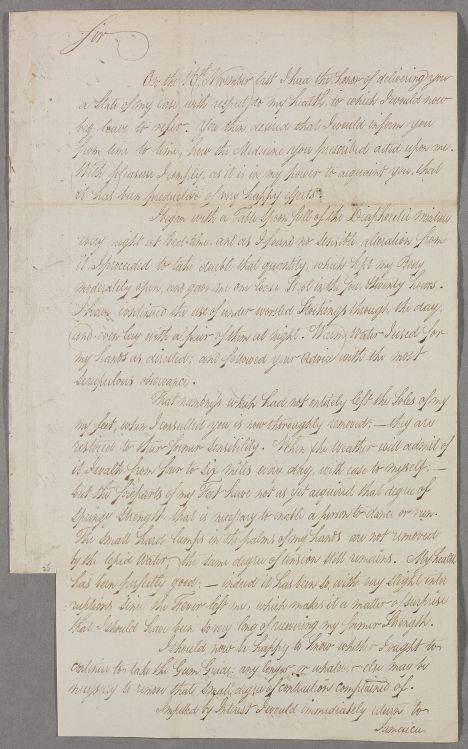 Sir
On the 16th November last I had the honor of delivering you
a State of my case with respect to my health, to which I would now
beg leave to refer. You then desired that I would inform you
from time to time, how the Medicine you prescribed acted upon me.
With pleasure I comply, as it is in my power to acquaint you, that
it has been productive of very happy effects.
I began with a Table Spoon full of the Diaphoretic Mixture
every night at bed-time, and as I found no sensible alteration from
it I proceeded to take double that quantity, which kept my Body
moderately open, and gave me one loose Stool in the four & twenty hours.
I have continued the use of under worsted Stockings through the day,
and even lay with a pair of them at night. Warm Water I used for
my hands as directed; and followed your Advice with the most
scrupulous observance.
That numbness which had not entirely left the Soles of my
my feet, when I consulted you is now thoroughly removed; — they are
restored to their former sensibility. When the Weather will admit of
it, I walk from four to Six miles every day, with ease to myself; —
but the foreparts of my Feet have not as yet acquired that degree of
springy Strength that is necessary to enable a person to dance or run.
The small hard lumps in the palms of my hands are not removed
by the tepid Water, the same degree of tension still remains. My health
has been perfectly good; — indeed it has been so with very slight inter
ruptions since the Fever left me, which makes it a matter of surprise
that I should have been so very long of recovering my former Strength.
I should now be happy to know whether I ought to
continue to take the Gum Guiac: any longer, or whatever else may be
necessary to remove that small degree of contractions complained of.
Impelled by Interest I would immediately return to
Jamaica
26